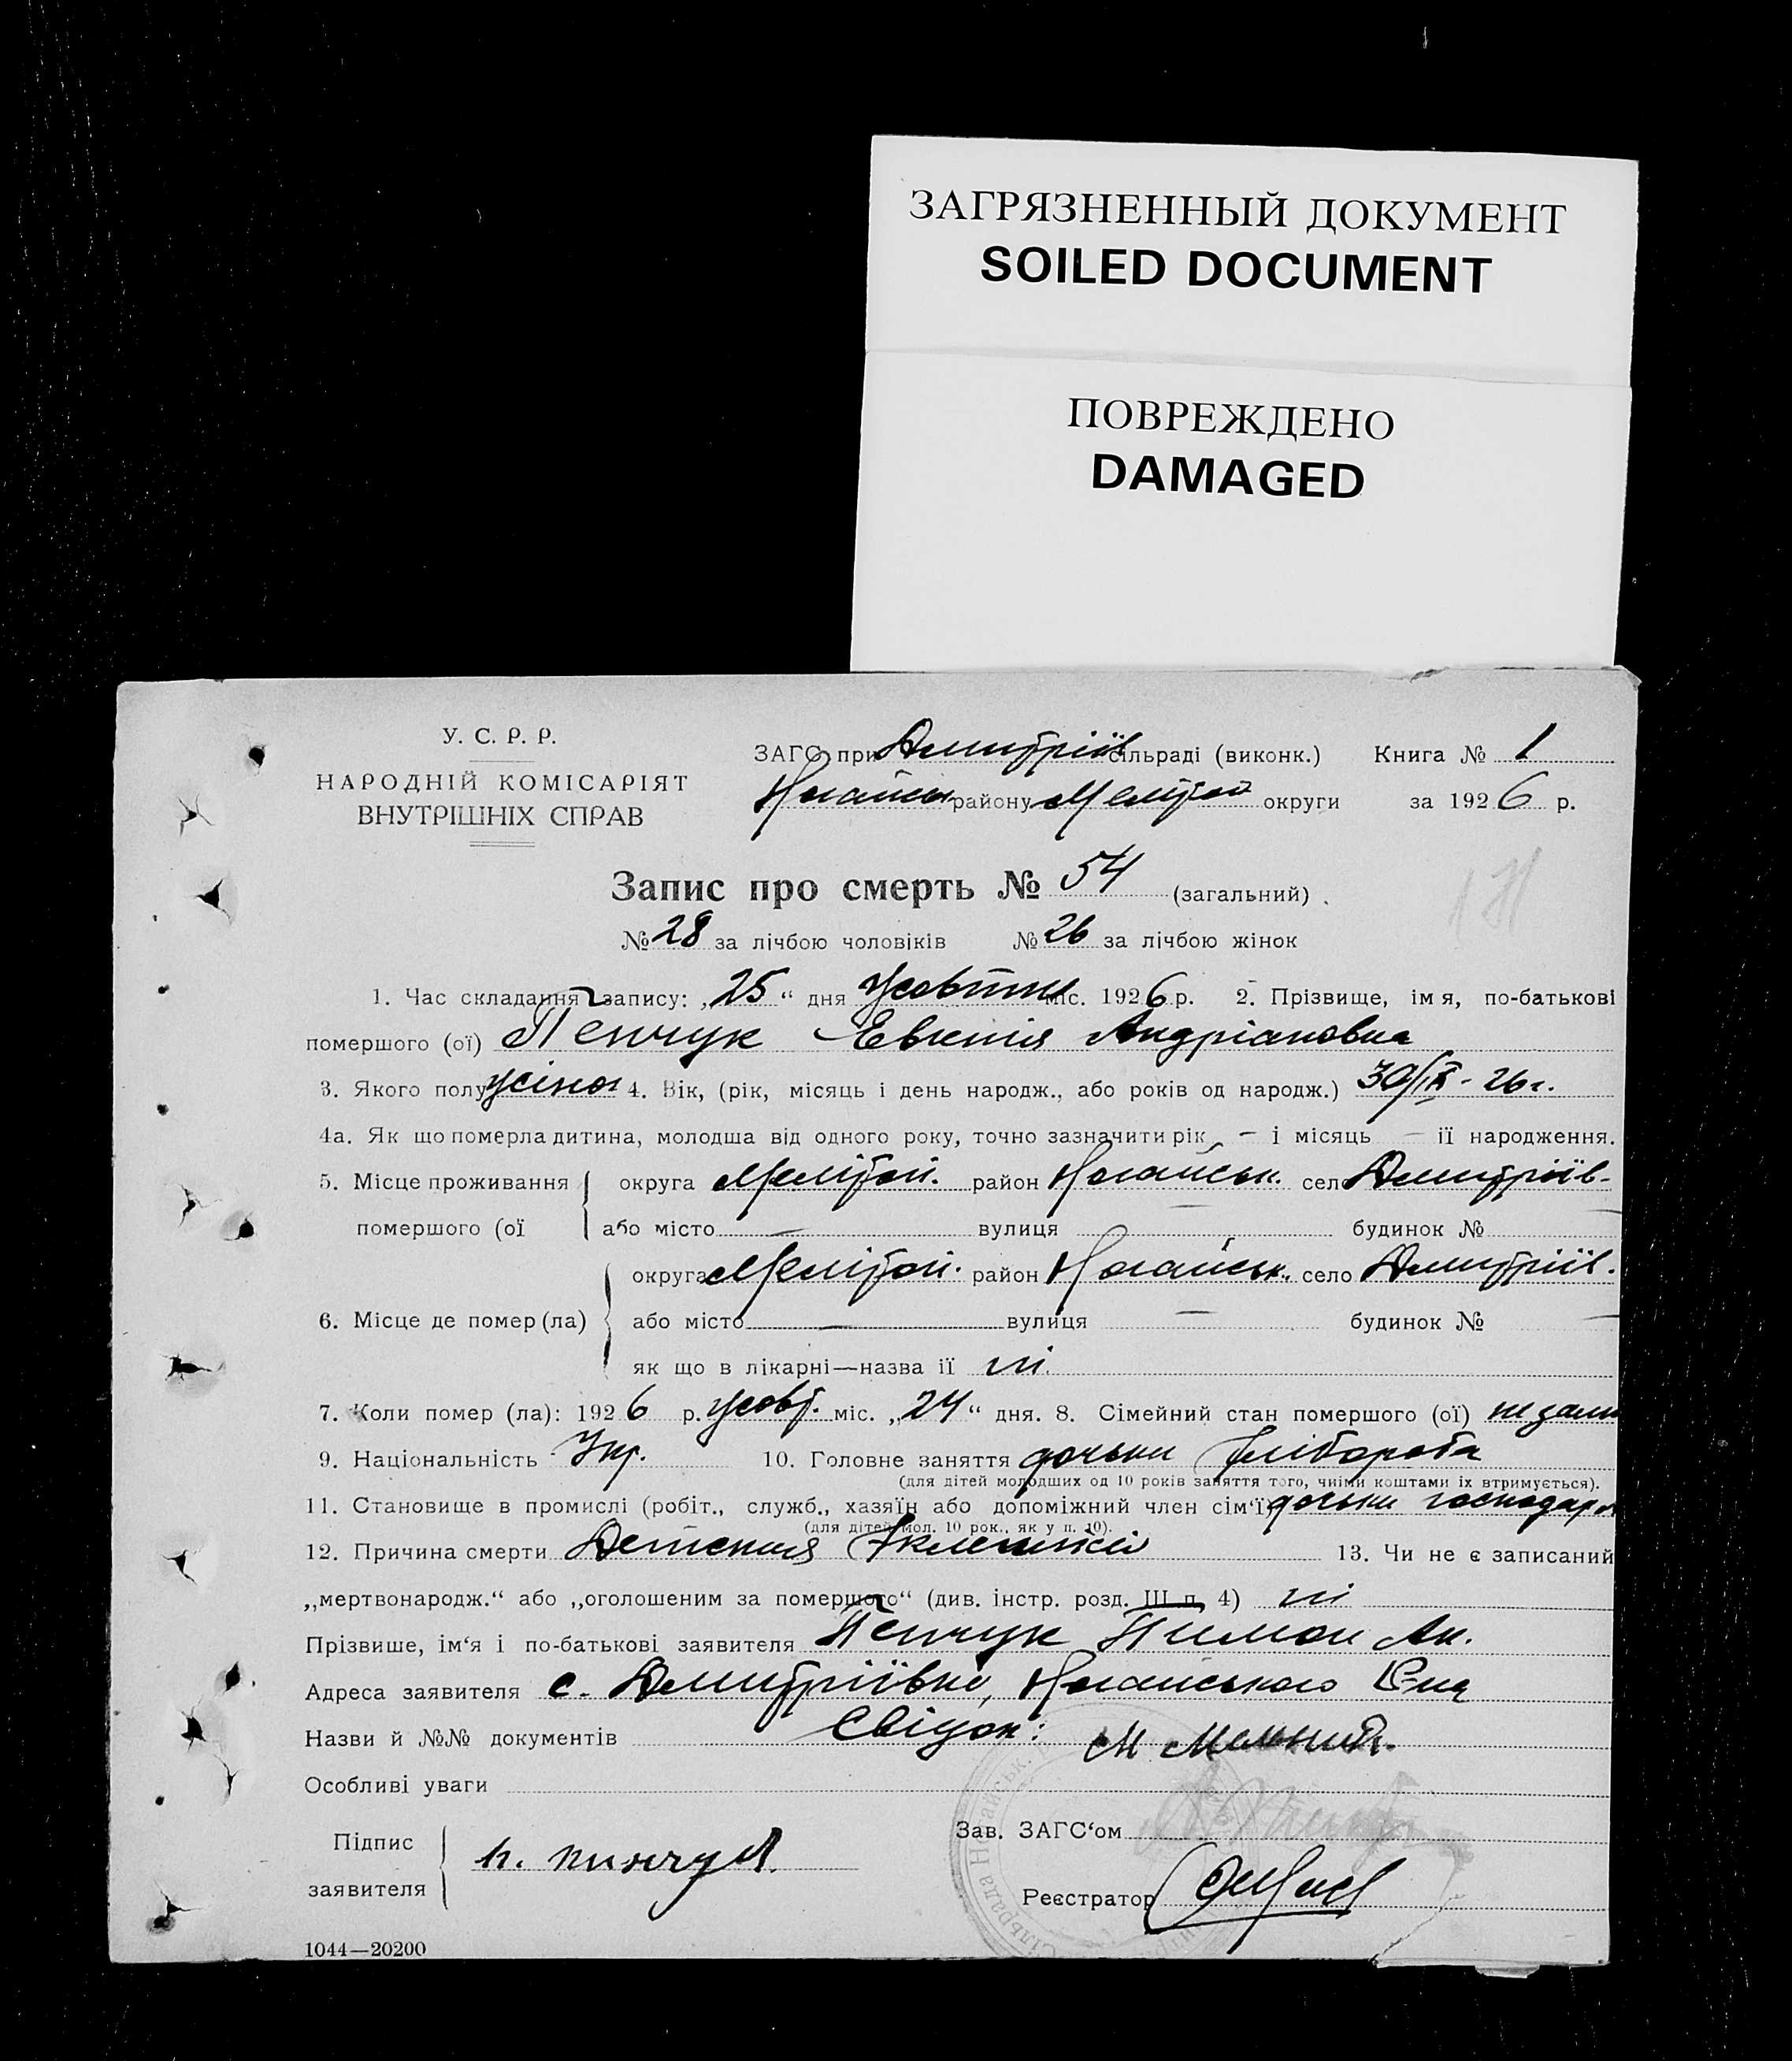 ЗАГРЯЗНЕННЫЙ ДОКУМЕНТ
SOILED DOCUMENT
ПОВРЕЖДЕНО
DAMAGED
У. С. Р. Р.
НАРОДНІЙ КОМІСАРІЯТ
ВНУТРІШНІХ СПРАВ
ЗАГС при Дмитріїв сільраді (виконк.) Книга № 1
Ногайськ району Меліток округи за 1926 р.
Запис про смерть № 54 (загальний)
№ 28 за лічбою чоловіків № 26 за лічбою жінок
1. Час складання запису: „25“ дня Жовтня міс. 1926 р. 2. Прізвище, ім я, по-батькові
помершого (ої) Пенчук Евгенія Андріановна
3. Якого полу жіноч 4. Вік, (рік, місяць і день народж., або років од народж.) 30/IX - 26 г.
4а. Як що померла дитина, молодша від одного року, точно зазначити рік — і місяць — її народження.
5. Місце проживання округа Меліток. район Ногайськ. село Дмитріїв-
помершого (ої або місто — вулиця — будинок № —
округа Меліток. район Ногайськ. село Дмитріїв.
6. Місце де помер (ла) або місто — вулиця — будинок № —
як що в лікарні—назва її ні.
7. Коли помер (ла): 1926 р. жовт. міс. „24“ дня. 8. Сімейний стан помершого (ої) не зам
9. Національність Укр. 10. Головне заняття дочька хлібороба
(для дітей молодших од 10 років заняття того, чиїми коштами їх втримується).
11. Становище в промислі (робіт., служб., хазяїн або допоміжний член сім‘ї) дочька господаря
(для дітей мол. 10 рок., як у п. 10).
12. Причина смерти Детская 13. Чи не є записаний
„мертвонародж.“ або „оголошеним за помершого“ (див. інстр. розд. III п. 4) ні
Прізвише, ім‘я і по-батькові заявителя Пенчук Пимон Ан.
Адреса заявителя с. Дмитріївка, Ногайського
Назви й №№ документів Свідок: М Мельник.
Особливі уваги
Підпис
заявителя п. пинчук.
Зав. ЗАГС‘ом
Реєстратор
1044—20200